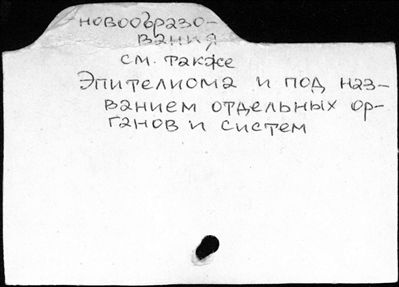 новообразо-
вания
см. также
Эпителиома и под наз-
ванием отдельных ор-
ганов и систем